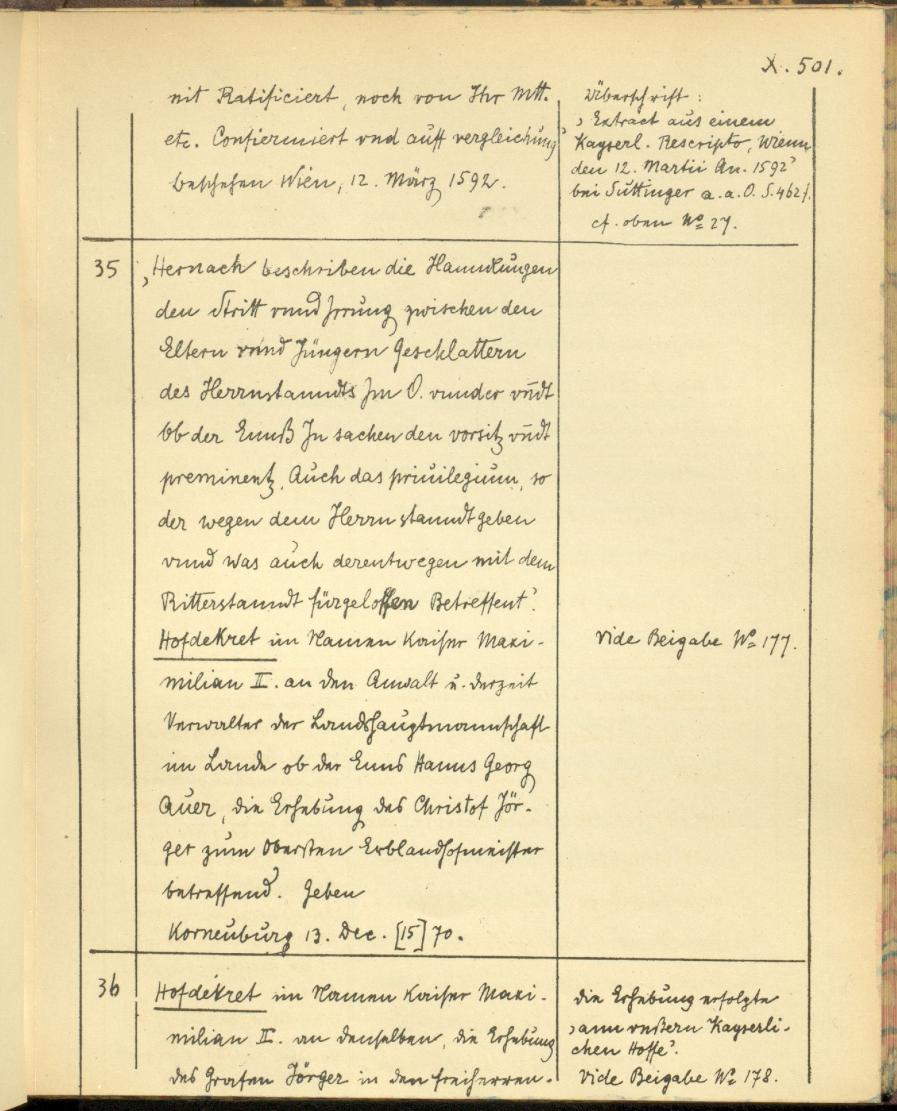 X. 501.
nit Ratificiert, noch von Ihr Mtt.
etc. Confiermiert vnd auff vergleichung'
beschehen Wien, 12. März 1592.
Überschrift:
‚Extract aus einem
Kayserl. Rescripto, Wienn
den 12. Martii An. 1592'
bei Suttinger a.a.O. S. 462f.
cf. oben No 27.
35
‚Hernach beschriben die Hanndlungen
den Stritt vnnd Jrrung zwischen den
Eltern vnnd Jüngern Geschlattern
des Herrnstanndts Jm O. vnnder vn̄dt
Ob der Ennß Jn sachen den vorsitz vn̄dt
preminentz, Auch das priuilegium, so
der wegen dem Herrn standt geben
vnnd was auch derentwegen mit dem
Ritterstanndt fürgeloffen Betreffent'.
Hofdekret im Namen Kaiser Maxi-
milian II. an den Anwalt u. derzeit
Verwalter der Landshauptmannschaft
im Lande ob der Enns Hanns Georg
Auer, die Erhebung des Christof Jör-
ger zum Obersten Erblandhofmeister
betreffend. Geben
Korneuburg 13. Dec. [15]70.
Vide Beigabe No 177.
36
Hofdekret im Namen Kaiser Maxi-
milian II. an denselben, die Erhebung
des Grafen Jörger in den Freiherren-
die Erhebung erfolgte
‚ann vnßern Kayserli-
chen Hoffe'.
Vide Beigabe No 178.